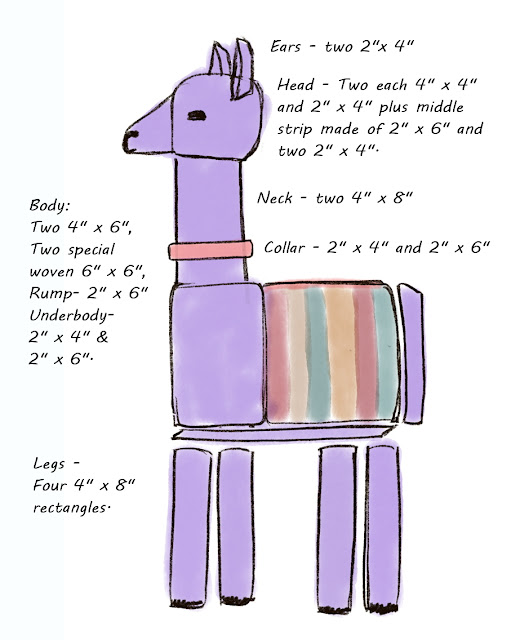 Ears - two 2"x 4"
Head - Two each 4" x 4"
and 2" x 4" plus middle
strip made of 2" x 6" and
two 2" x 4".
Neck - two 4" x 8"
Collar - 2" x 4" and 2" x 6"
Body:
Two 4" x 6",
Two special
woven 6" x 6",
Rump- 2" x 6"
Underbody-
2" x 4" &
2" x 6".
Legs -
Four 4" x 8"
rectangles.